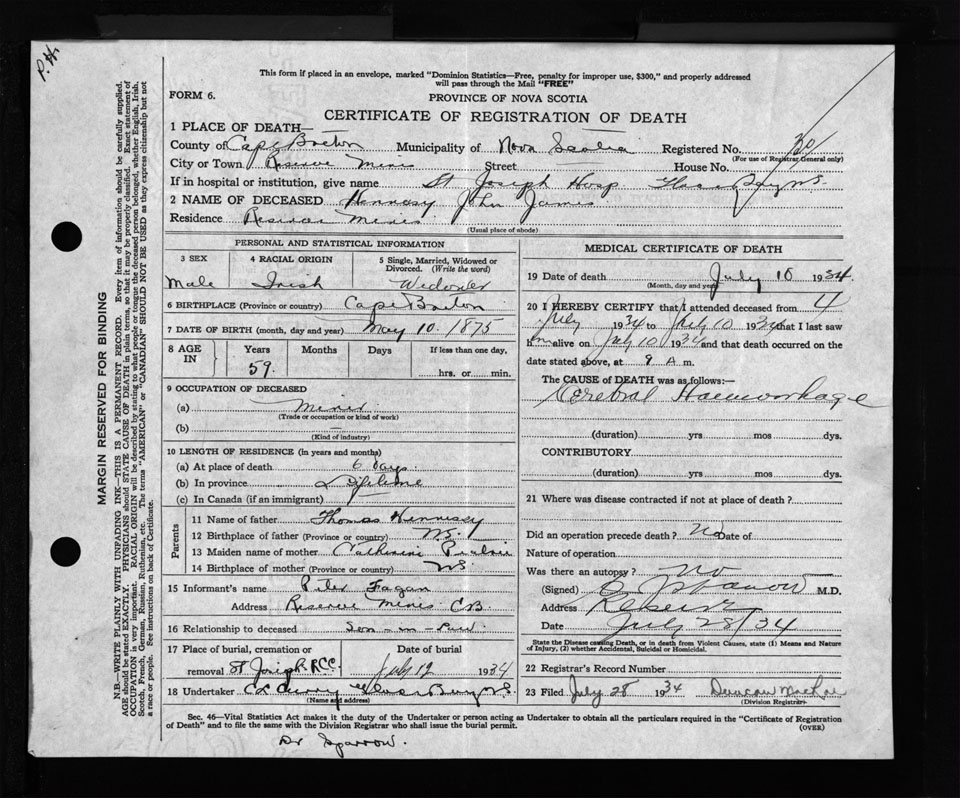 P.H.
This form if placed in an envelope, marked "Dominion Statistics—Free, penalty for improper use, $300," and properly addressed
will pass through the Mail "FREE"
FORM 6.
PROVINCE OF NOVA SCOTIA
CERTIFICATE OF REGISTRATION OF DEATH
1 PLACE OF DEATH—
County of Cape Breton Municipality of Nova Scotia Registered No.
(For use of Registrar General only)
City or Town Reserve Mines Street House No.
If in hospital or institution, give name St Joseph Hosp Glace Bay N.S.
2 NAME OF DECEASED Hennesy John James
Residence Reserve Mines
(Usual place of abode)
PERSONAL AND STATISTICAL INFORMATION
3 SEX 4 RACIAL ORIGIN 5 Single, Married, Widowed or Divorced. (Write the word)
Male Irish Widower
6 BIRTHPLACE (Province or country) Cape Breton
7 DATE OF BIRTH (month, day and year) May 10. 1875
8 AGE IN Years Months Days If less than one day,
59. hrs. or min.
9 OCCUPATION OF DECEASED
(a) Miner
(Trade or occupation or kind of work)
(b) —
(Kind of industry)
10 LENGTH OF RESIDENCE (in years and months)
(a) At place of death 6 days
(b) In province Lifetime
(c) In Canada (if an immigrant)
Parents
11 Name of father Thomas Hennesey
12 Birthplace of father (Province or country) N.S.
13 Maiden name of mother Catherine
14 Birthplace of mother (Province or country) N.S.
15 Informant's name Peter Fagan
Address Reserve Mines C.B.
16 Relationship to deceased Son-in-Law
17 Place of burial, cremation or Date of burial
removal St Joseph R.C.C. July 12 1934
18 Undertaker Glace Bay N.S.
(Name and address)
MEDICAL CERTIFICATE OF DEATH
19 Date of death July 10 1934
(Month, day and year)
20 I HEREBY CERTIFY that I attended deceased from 4
July 1934 to July 10 1934 that I last saw
him alive on July 10 1934 and that death occurred on the
date stated above, at 9 A m.
The CAUSE OF DEATH was as follows:—
Cerebral Haemorhage
(duration) yrs mos dys.
CONTRIBUTORY
(duration) yrs mos dys.
21 Where was disease contracted if not at place of death?
Did an operation precede death? No Date of
Nature of operation
Was there an autopsy? No
(Signed) M.D.
Address Reserve
Date July 28/34
State the Disease causing Death, or in death from Violent Causes, state (1) Means and Nature of Injury, (2) whether Accidental, Suicidal or Homicidal.
22 Registrar's Record Number
23 Filed July 28 1934 Duncan MacRae
(Division Registrar)
Sec. 46—Vital Statistics Act makes it the duty of the Undertaker or person acting as Undertaker to obtain all the particulars required in the "Certificate of Registration
of Death" and to file the same with the Division Registrar who shall issue the burial permit.
(OVER)
Dr Sparrow.
MARGIN RESERVED FOR BINDING
N.B.—WRITE PLAINLY WITH UNFADING INK—THIS IS A PERMANENT RECORD. Every item of information should be carefully supplied.
AGE should be stated EXACTLY. PHYSICIANS should STATE CAUSE OF DEATH in plain terms, so that it may be properly classified. Exact statement of
OCCUPATION is very important. RACIAL ORIGIN will be described by stating to what people or tongue the deceased person belonged, whether English, Irish,
Scotch, French, German, Russian, Ruthenian, etc. The terms "AMERICAN" or "CANADIAN" SHOULD NOT BE USED as they express citizenship but not
a race or people. See instructions on back of Certificate.